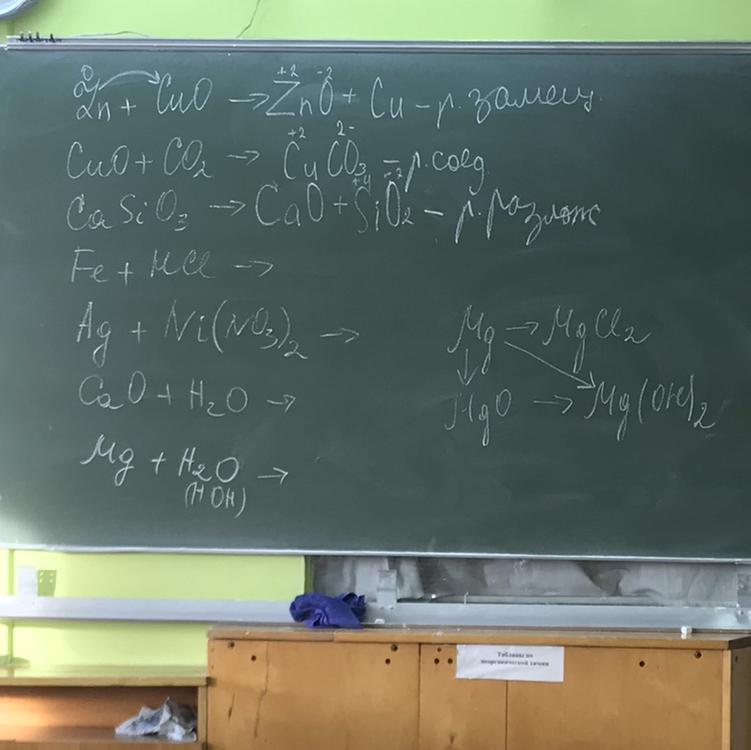 0 +2 -2
Zn + CuO → ZnO + Cu - р. замещ.
+2 2-
CuO + CO₂ → CuCO₃ - р. соед.
+4 -2
CaSiO₃ → CaO + SiO₂ - р. разлож
Fe + HCl →
Ag + Ni(NO₃)₂ →
CaO + H₂O →
Mg + H₂O →
(HOH)
Mg → MgCl₂
MgO → Mg(OH)₂
Таблицы по
неорганической химии